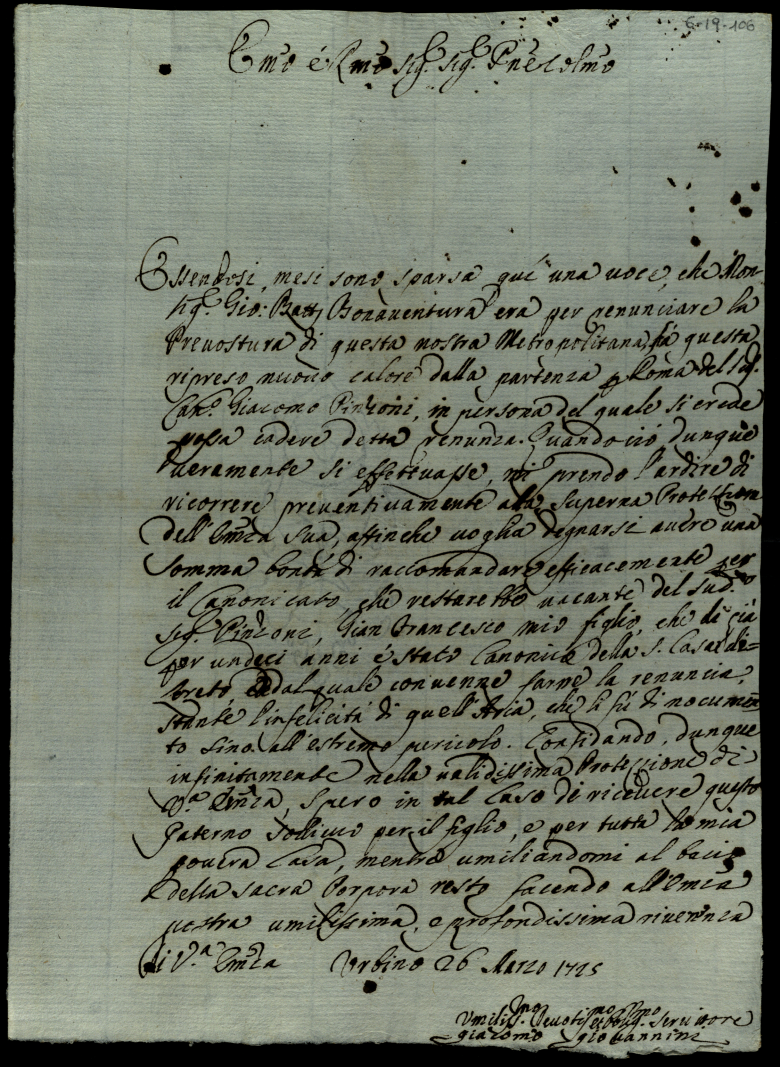 6-19-106
Emo é Rmo Sig.r Sig.r Pne Colmo
Essendosi, mesi sono sparsa quì una voce, che Mon-
sig.r Gio: Batta Bonaventura era per renunciare la
Prevostura di questa nostra Metropolitana, hà questa
ripreso nuovo calore dalla partenza p Roma del Sig.
Can.o Giacomo Pinzoni, in persona del quale si crede
possa cadere detta renunza. Quando ciò dunque
veramente si effettuasse, mi prendo l'ardire di
ricorrere preventivamente alla superna Protettione
dell'Emza Sua, affinche voglia degnarsi avere una
somma bontà di raccomandare efficacemente per
il Canonicato, che restarebbe vacante del sud.o
Sig.r Pinzoni, Gian Francesco mio figlio, che di già
per undeci anni è stato Canonico della S. Casa di Lo-
reto dal quale convenne farne la renuncia,
stante l'infelicità di quell'Aria, che li fù di nocumen
to sino all'estremo pericolo. Confidando, dunque
infinitamente nella validissima Protezzione di
V.a Emza, spero in tal caso di ricevere questo
Paterno sollievo per il figlio, e per tutta la mia
povera Casa, mentre umiliandomi al bacio
della sacra Porpora resto facendo all'Emza
vostra umilissima, e profondissima riverenza
Di V.a Emza Urbino 26 Marzo 1725
Umiliss.mo Devotis.mo et Obblig.mo Servitore
Giacomo Giovannini